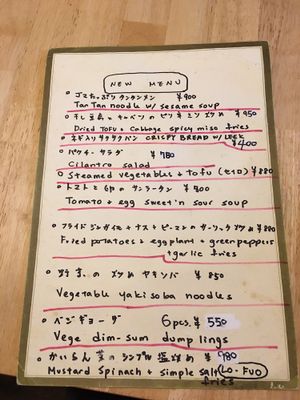 NEW MENU
ゴマたっぷりタンタンメン ¥900
Tan Tan noodle w/ sesame soup
干し豆腐とキャベツのピリ辛ミソ炒め ¥950
Dried Tofu + Cabbage spicy miso fries
ネギ入りサクサクパン CRISPY BREAD w/ LEEK
¥400
パクチーサラダ ¥780
Cilantro salad
Steamed vegetables + tofu (セイロ) ¥880
トマトと卵のサンラータン ¥900
Tomato + egg sweet'n sour soup
フライドジャガイモ+ナス+ピーマンのガーリック炒め ¥880
Fried potatoes + eggplant + greenpeppers
+garlic fries
野菜の炒めヤキソバ ¥850
Vegetable yakisoba noodles
ベジギョーザ 6pcs. ¥550
Vege dim-sum dumplings
かいらん菜のシンプル塩炒め ¥780
Mustard Spinach + simple salt fries
LO-FUO